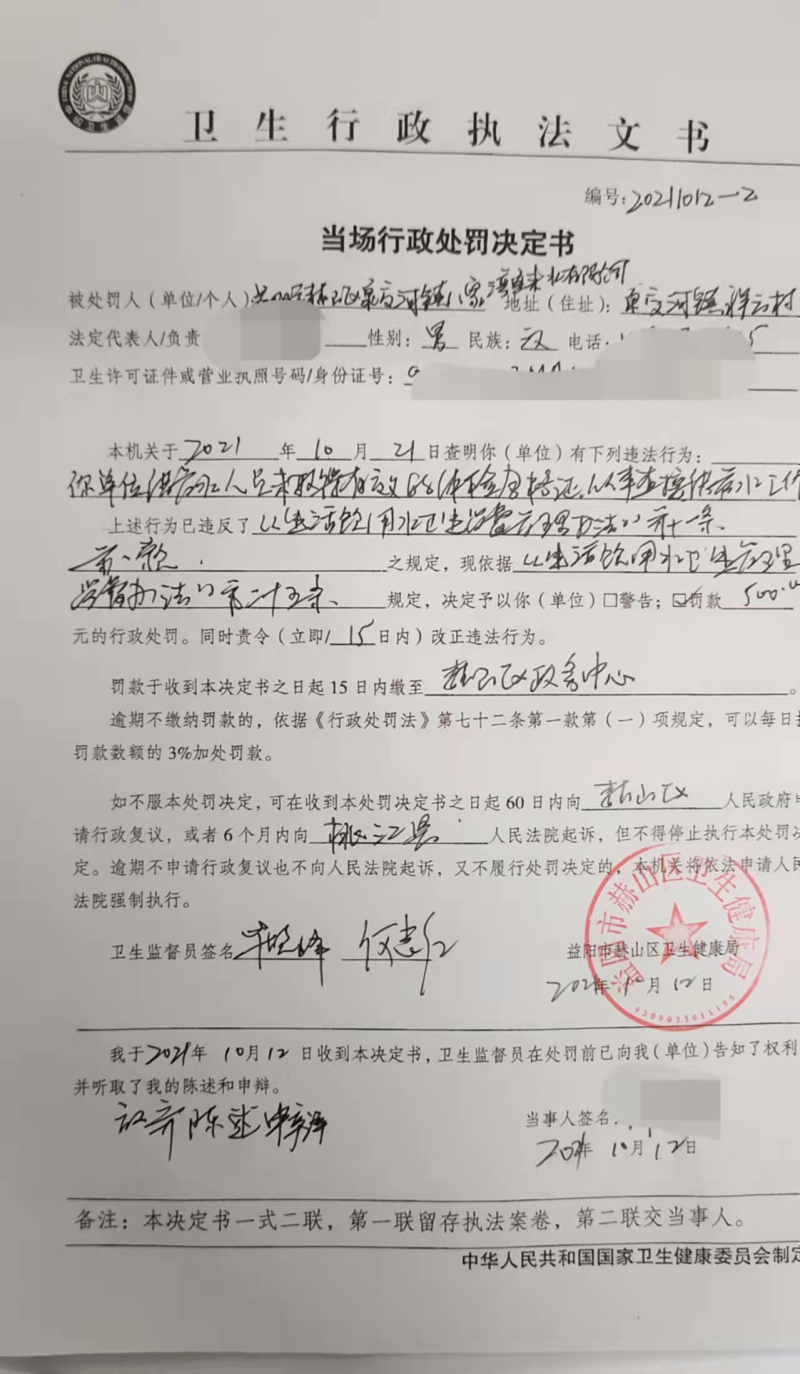 卫生行政执法文书
编号:20211012-2
当场行政处罚决定书
被处罚人(单位/个人) 益阳市赫山区泉交河镇八家湾 有限公司 地址(住址):泉交河镇 村
法定代表人/负责 性别:男 民族:汉 电话
卫生许可证件或营业执照号码/身份证号:9
本机关于2021年10月21日查明你(单位)有下列违法行为:
你单位供管水人员未取得有效的体检合格证,从事直接供管水工作
上述行为已违反了《生活饮用水卫生监督管理办法》第十一条
第一款 之规定,现依据《生活饮用水卫生管理
监督办法》第二十五条 规定,决定予以你(单位)□警告;☑罚款 500.00
元的行政处罚。同时责令(立即/15日内)改正违法行为。
罚款于收到本决定书之日起15日内缴至赫山区政务中心。
逾期不缴纳罚款的,依据《行政处罚法》第七十二条第一款第(一)项规定,可以每日按
罚款数额的3%加处罚款。
如不服本处罚决定,可在收到本处罚决定书之日起60日内向赫山区人民政府申
请行政复议,或者6个月内向桃江县人民法院起诉,但不得停止执行本处罚决
定。逾期不申请行政复议也不向人民法院起诉,又不履行处罚决定的,本机关将依法申请人民
法院强制执行。
卫生监督员签名
益阳市赫山区卫生健康局
益阳市赫山区卫生健康局
2021年10月12日
我于2021年10月12日收到本决定书,卫生监督员在处罚前已向我(单位)告知了权利
并听取了我的陈述和申辩。
放弃陈述申辩
当事人签名
2021年10月12日
备注:本决定书一式二联,第一联留存执法案卷,第二联交当事人。
中华人民共和国国家卫生健康委员会制定